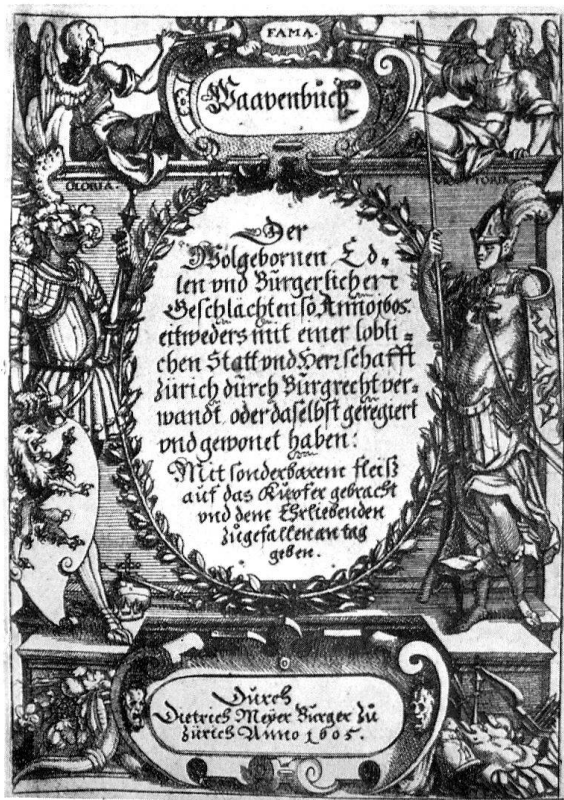 FAMA.
Waapenbůch
GLORIA.
VICTORIA
Der
Wolgebornen Ed-
len vnd Bůrgerlichere
Geschlächten so Anno 1605.
eitweders mit einer lobli-
chen Statt vnd Herrschafft
Zürich durch Burgrecht ver-
wandt, oder daselbst geregiert
vnd gewonet haben:
Mit sonderbarem fleiß
auf das Kupfer gebracht
vnd dem Ehrliebenden
zůgefallen an tag
geben.
Durch
Dietrich Meÿer Burger zů
Zürich Anno 1605.